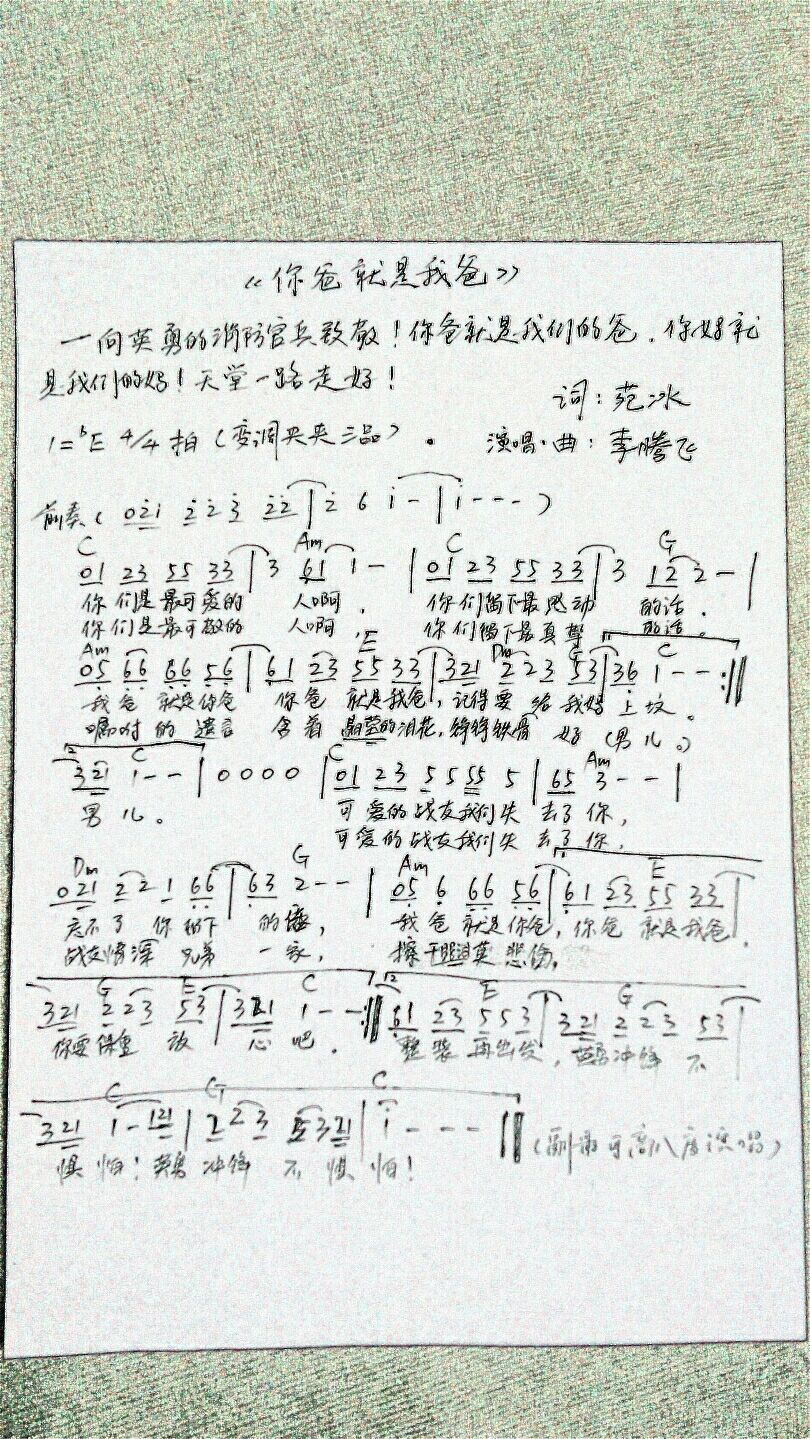 《你爸就是我爸》
一向英勇的消防官兵致敬！你爸就是我们的爸，你妈就
是我们的妈！天堂一路走好！
词：范冰
1=♭E 4/4拍（变调夹夹三品）。 演唱·曲：李腾飞
前奏（ 021 2 2 3 22 | 2 6 1 - | 1 - - - ）
C Am C G
01 23 55 33 | 3 61 1 - | 01 23 55 33 | 3 12 2 - |
你们是最可爱的 人啊， 你们留下最感动 的话。
你们是最可敬的 人啊， 你们留下最真挚 的话。
Am E Dm G C
05 66 66 56 | 61 23 55 33 | 321 2 23 53 | 36 1 - - :||
我爸 就是你爸 你爸 就是我爸，记得要 给我妈 上坟。
嘱咐的 遗言 含着 晶莹的泪花，铮铮铁骨 好（男儿。）
2 C C Am
321 1 - - | 0 0 0 0 | 01 23 5 5 55 5 | 65 3 - - |
男儿。 可爱的战友我们失 去了你，
可爱的战友我们失 去了你，
Dm G Am E
021 2 2 1 66 | 63 2 - - | 05 6 66 56 | 61 23 55 33 |
忘不了 你 留下 的 ， 我爸 就是你爸，你爸 就是我爸。
战友情深 兄弟 一家， 擦干 悲伤。
G E C 2 E G
321 2 23 53 | 321 1 - - :|| 61 23 5 53 | 321 2 23 53 |
你要保重 放 心 吧。 整装 再出发，英勇冲锋 不
C G C
321 1 - 121 | 2 23 5321 | 1 - - - ||
惧 怕！英勇 冲锋 不 惧 怕！ （副歌可高八度演唱）